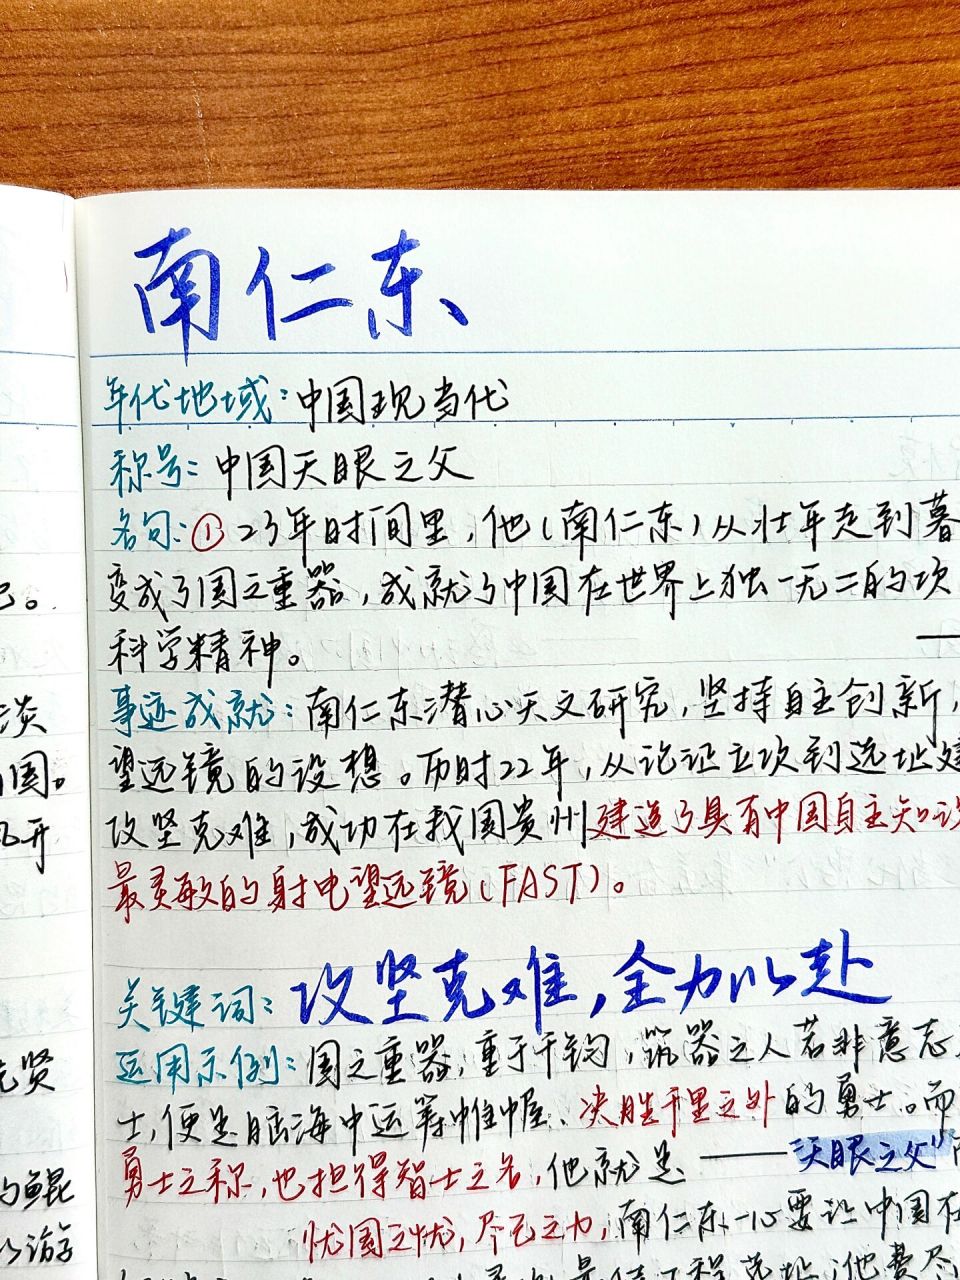 南仁东
年代地域：中国现当代
称号：中国天眼之父
名句：①23年时间里，他（南仁东）从壮年走到暮
变成了国之重器，成就了中国在世界上独一无二的项
科学精神。
事迹成就：南仁东潜心天文研究，坚持自主创新，
望远镜的设想。历时22年，从论证立项到选址建
攻坚克难，成功在我国贵州建造了具有中国自主知识
最灵敏的射电望远镜（FAST）。
关键词：攻坚克难，全力以赴
运用示例：国之重器，重于千钧，筑器之人若非意志
士，便是脑海中运筹帷幄、决胜千里之外的勇士。而
勇士之称，也担得智士之名，他就是——“天眼之父”
忧国之忧，尽己之力，南仁东一心要让中国在
己。
淡
国。
开
贤
的鲲
以游